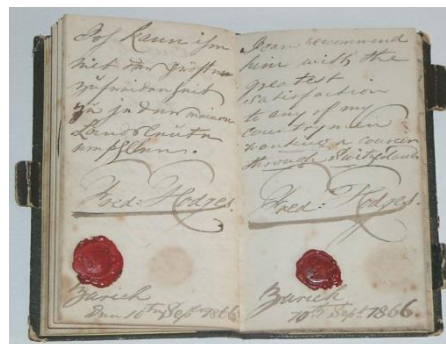 Ich kann ihm
mit der größten
zufriedenheit
zu jeder meinen
Landsleute
empfehlen.
Fred: Hodges.
Zurich
Den 10ten Sept 1866
I can recommend
him with the
greatest
satisfaction
to any of my
countrymen
wanting a courier
through Switzerland
Fred: Hodges.
Zurich
10th Sept. 1866.